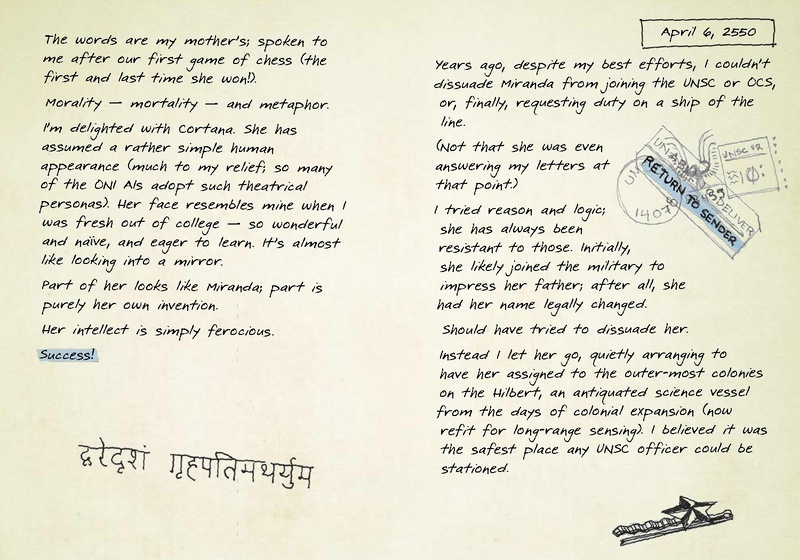 The words are my mother's; spoken to
me after our first game of chess (the
first and last time she won!).
Morality — mortality — and metaphor.
I'm delighted with Cortana. She has
assumed a rather simple human
appearance (much to my relief; so many
of the ONI AIs adopt such theatrical
personas). Her face resembles mine when I
was fresh out of college — so wonderful
and naïve, and eager to learn. It's almost
like looking into a mirror.
Part of her looks like Miranda; part is
purely her own invention.
Her intellect is simply ferocious.
Success!
दूरेदृशं गृहपतिमथर्युम
April 6, 2550
Years ago, despite my best efforts, I couldn't
dissuade Miranda from joining the UNSC or OCS,
or, finally, requesting duty on a ship of the
line.
(Not that she was even
answering my letters at
that point.)
I tried reason and logic;
she has always been
resistant to those. Initially,
she likely joined the military to
impress her father; after all, she
had her name legally changed.
Should have tried to dissuade her.
Instead I let her go, quietly arranging to
have her assigned to the outer-most colonies
on the Hilbert, an antiquated science vessel
from the days of colonial expansion (now
refit for long-range sensing). I believed it was
the safest place any UNSC officer could be
stationed.
RETURN TO SENDER